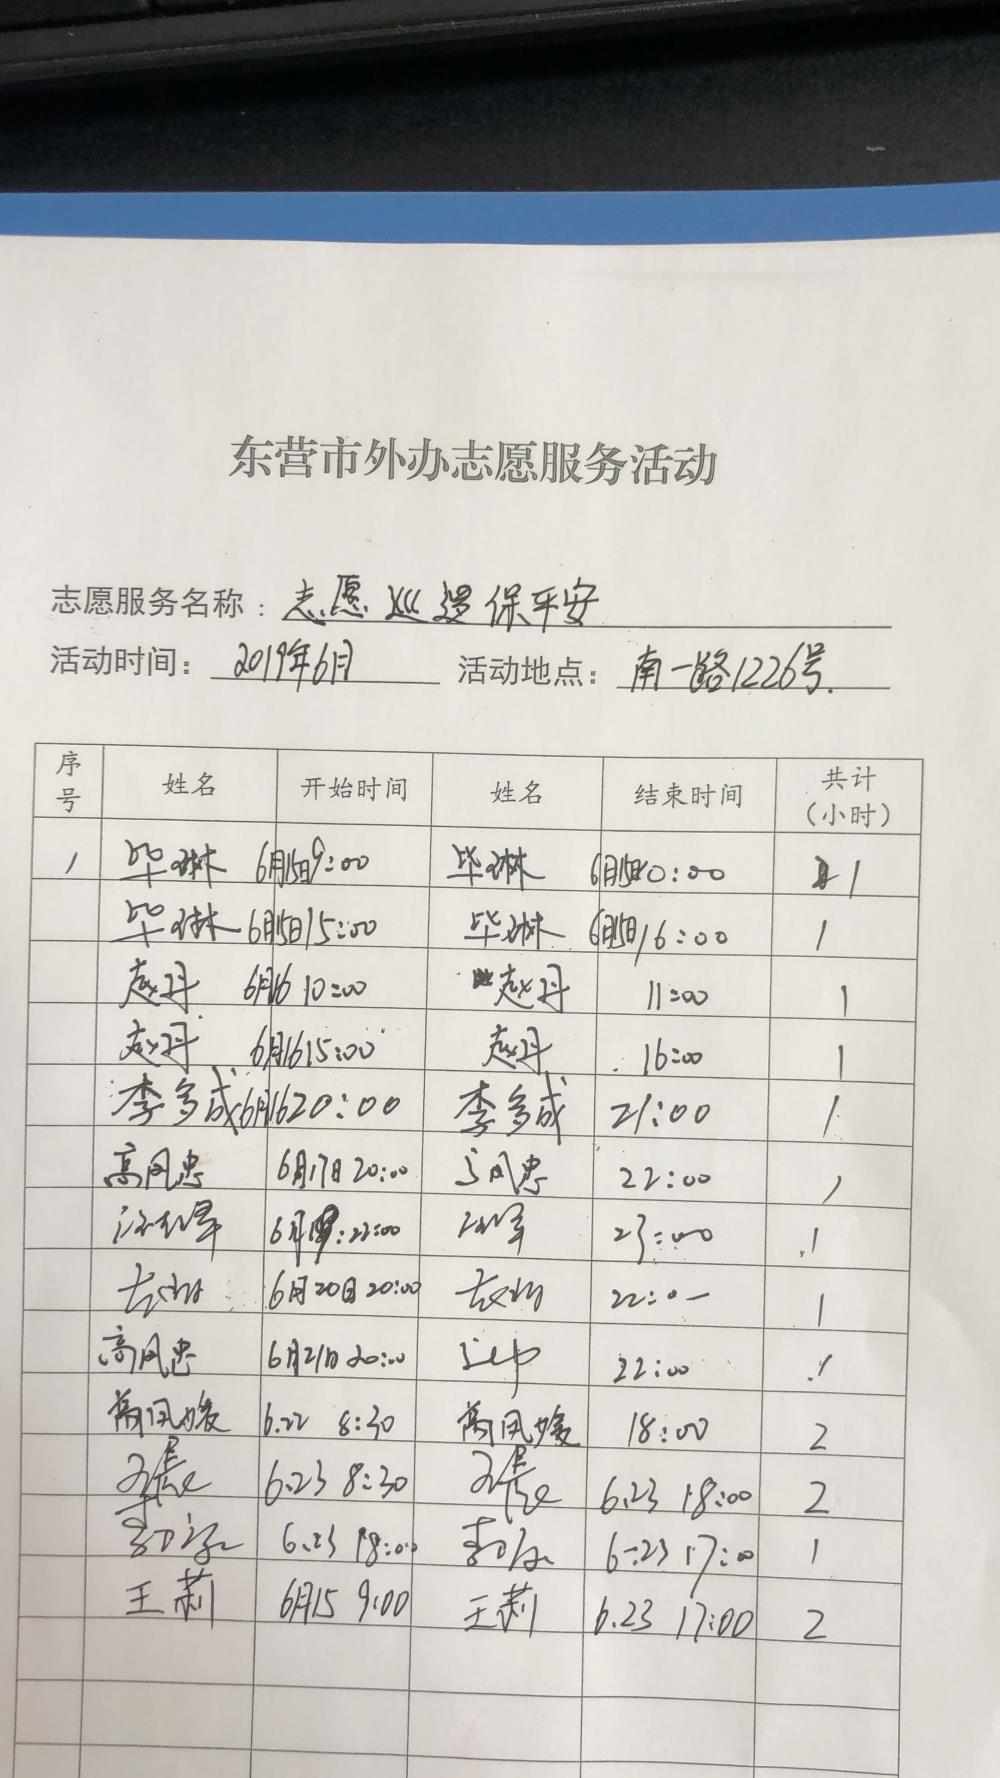 东营市外办志愿服务活动
志愿服务名称：志愿巡逻保平安
活动时间：2019年6月 活动地点：南一路1226号.
序号 姓名 开始时间 姓名 结束时间 共计（小时）
1 毕琳 6月15日9:00 毕琳 6月15日10:00 1
毕琳 6月15日15:00 毕琳 6月15日16:00 1
赵丹 6月16 10:00 赵丹 11:00 1
赵丹 6月16 15:00 赵丹 16:00 1
李多成 6月16 20:00 李多成 21:00 1
高凤忠 6月17日 20:00 高凤忠 22:00 1
22:00 23:00 1
6月20日 20:00 22:00 1
高凤忠 6月21日 20:00 22:00 1
高凤媛 6.22 8:30 高凤媛 18:00 2
6.23 8:30 6.23 18:00 2
6.23 18:00 6.23 17:00 1
王莉 6月15 9:00 王莉 6.23 17:00 2